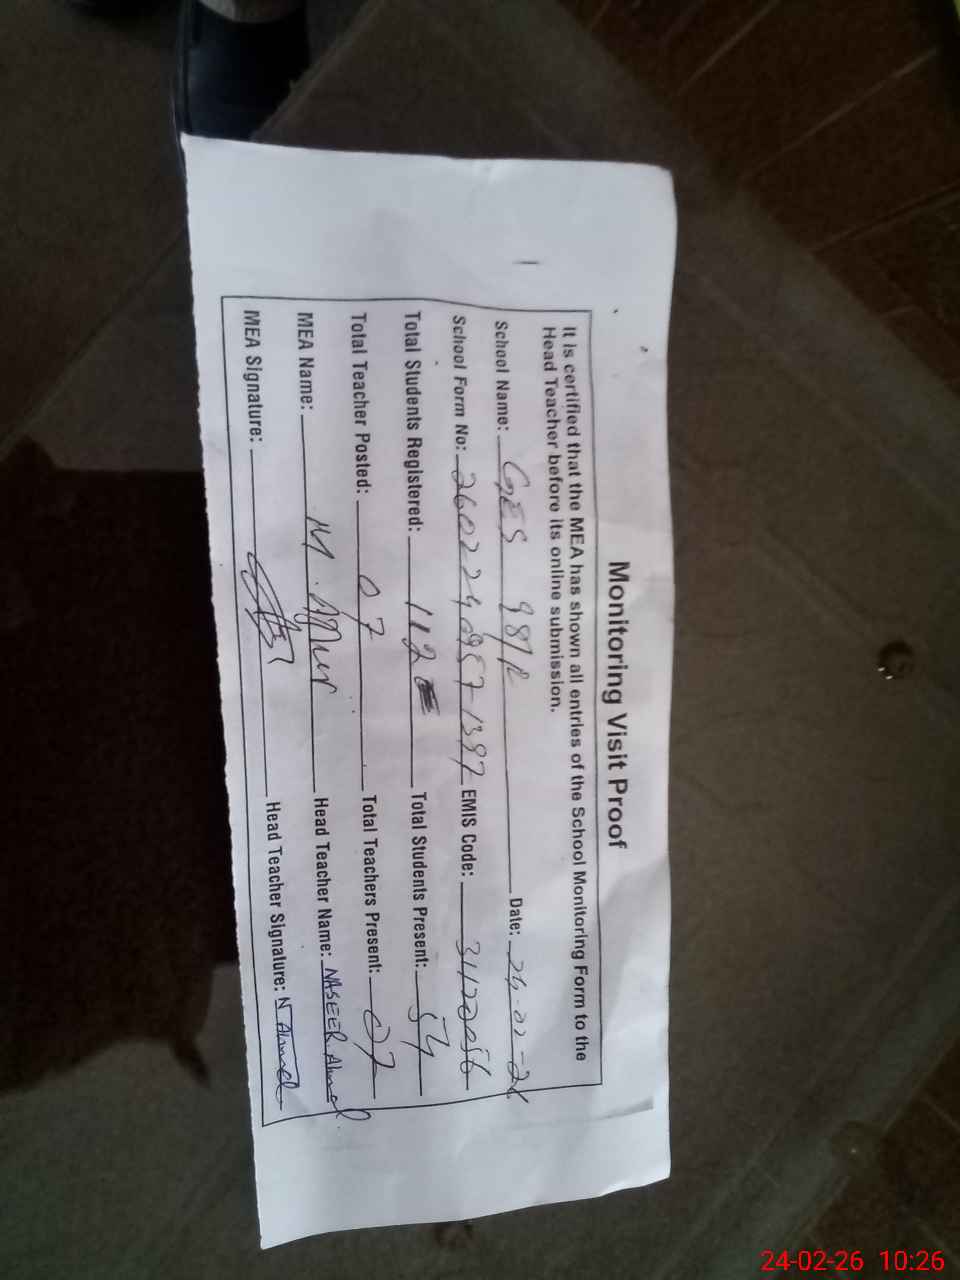 Monitoring Visit Proof
It is certified that the MEA has shown all entries of the School Monitoring Form to the
Head Teacher before its online submission.
School Name: GES 98/R Date: 24-02-26
School Form No: EMIS Code: 31120056
Total Students Registered: 112 Total Students Present: 54
Total Teacher Posted: 07 Total Teachers Present: 07
MEA Name: M. Head Teacher Name: NASEER Ahmad.
MEA Signature: Head Teacher Signature: N Ahmad
24-02-26 10:26